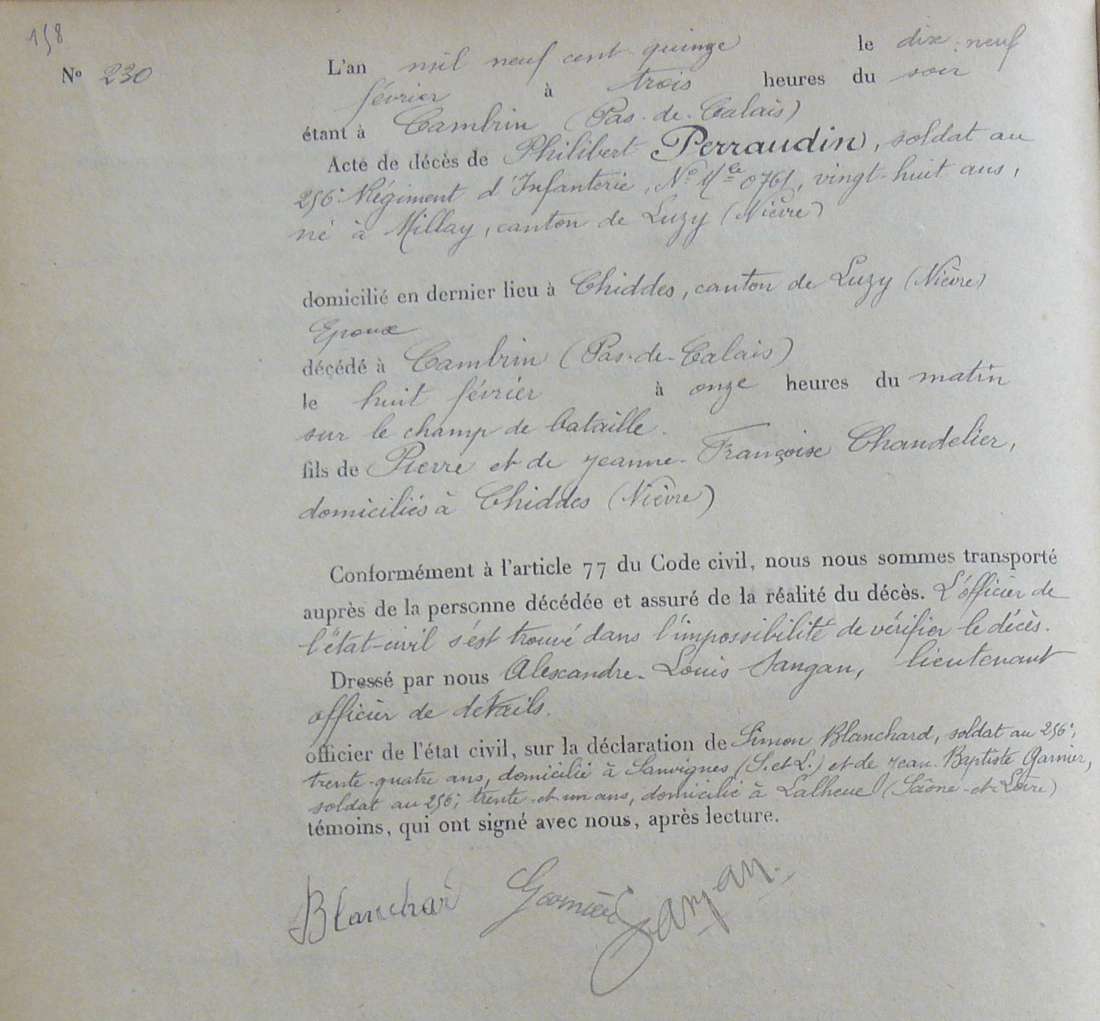 158
N° 230
L'an mil neuf cent quinze le dix-neuf
février à trois heures du soir
étant à Cambrin (Pas-de-Calais)
Acte de décès de Philibert Perraudin, soldat au
256e Régiment d'Infanterie, N° Mle 0761, vingt-huit ans,
né à Millay, canton de Luzy (Nièvre)
domicilié en dernier lieu à Chiddes, canton de Luzy (Nièvre)
Epoux
décédé à Cambrin (Pas-de-Calais)
le huit février à onze heures du matin
sur le champ de bataille.
fils de Pierre et de Jeanne-Françoise Chandelier,
domiciliés à Chiddes (Nièvre)
Conformément à l'article 77 du Code civil, nous nous sommes transporté
auprès de la personne décédée et assuré de la réalité du décès. L'officier de
l'état-civil s'est trouvé dans l'impossibilité de vérifier le décès.
Dressé par nous Alexandre-Louis Sangan, lieutenant
officier de détails.
officier de l'état civil, sur la déclaration de Simon Blanchard, soldat au 256e,
trente-quatre ans, domicilié à Sanvignes (S. et L.) et de Jean-Baptiste Garnier,
soldat au 256e, trente-et-un ans, domicilié à Lalheue (Saône-et-Loire)
témoins, qui ont signé avec nous, après lecture.
Blanchar Garnier Sangan